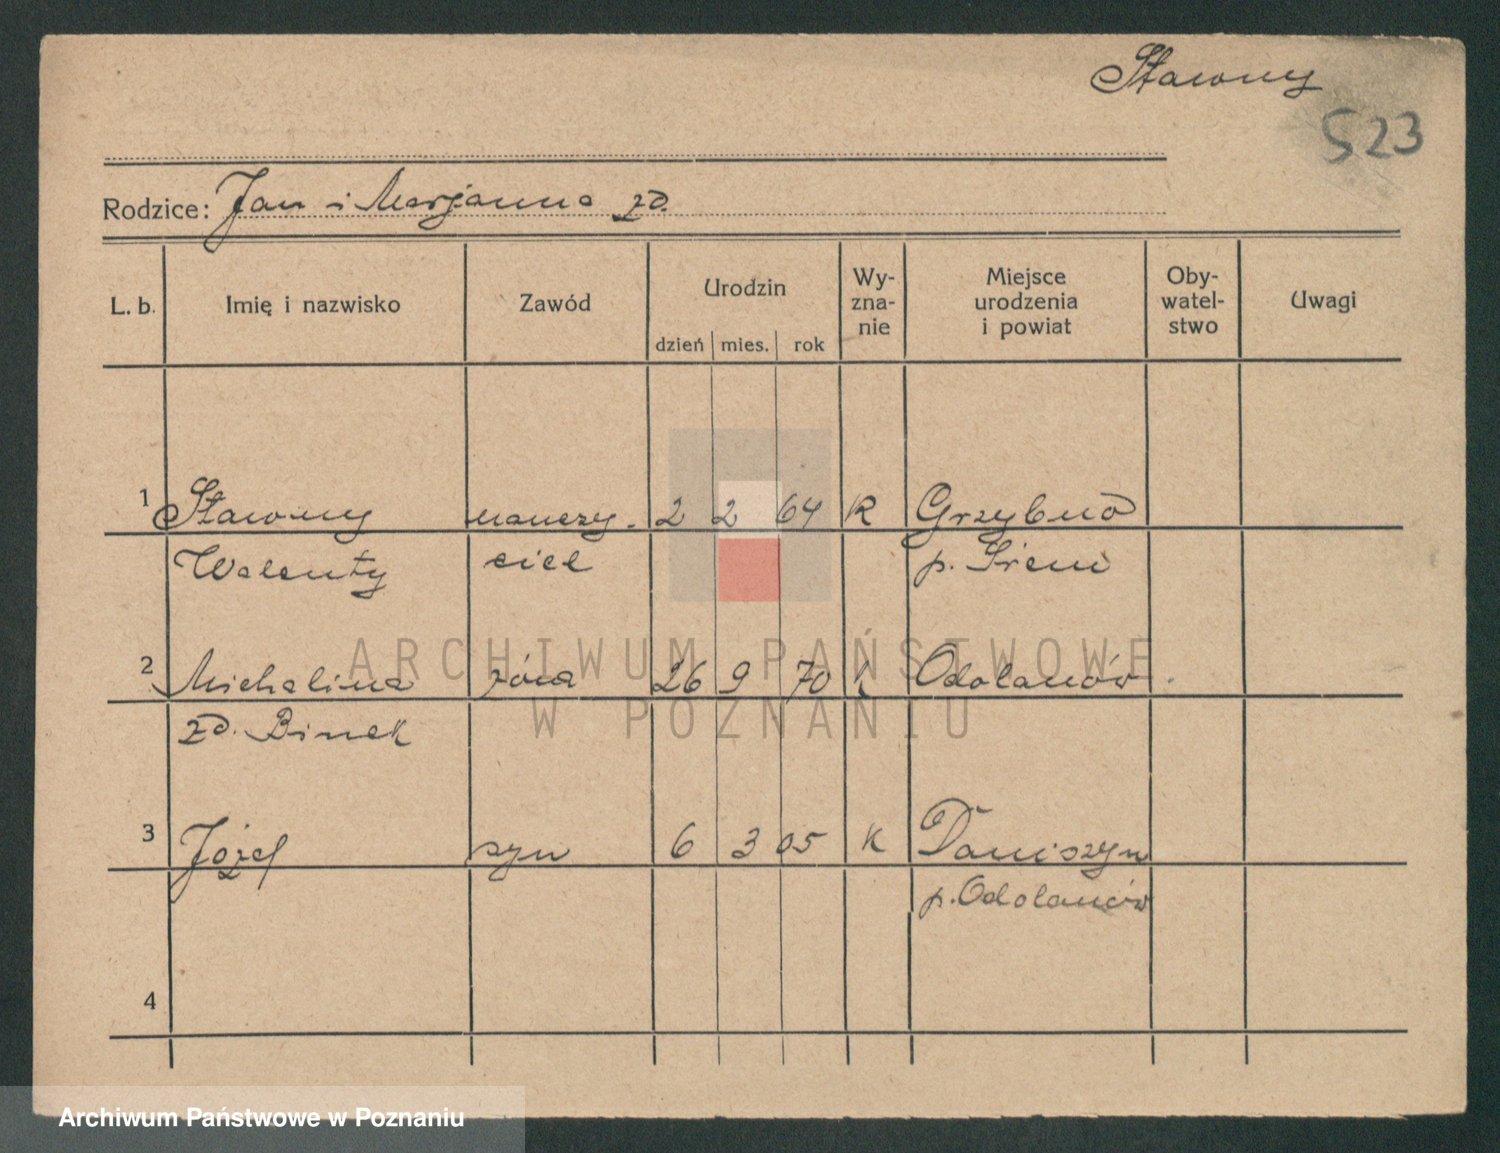 Sławny
523
Rodzice: Jan i Marjanna zd.
L. b. Imię i nazwisko Zawód Urodzin Wy-zna-nie Miejsce urodzenia i powiat Oby-watel-stwo Uwagi
dzień mies. rok
1 Sławny nauczy- 2 2 64 K Grzybno
Walenty ciel p. Śrem
2 Michalina żona 26 9 70 K Odolanów
zd. Binek
3 Józef syn 6 3 05 K Daniszyn
p. Odolanów
4
ARCHIWUM PAŃSTWOWE
W POZNANIU
Archiwum Państwowe w Poznaniu